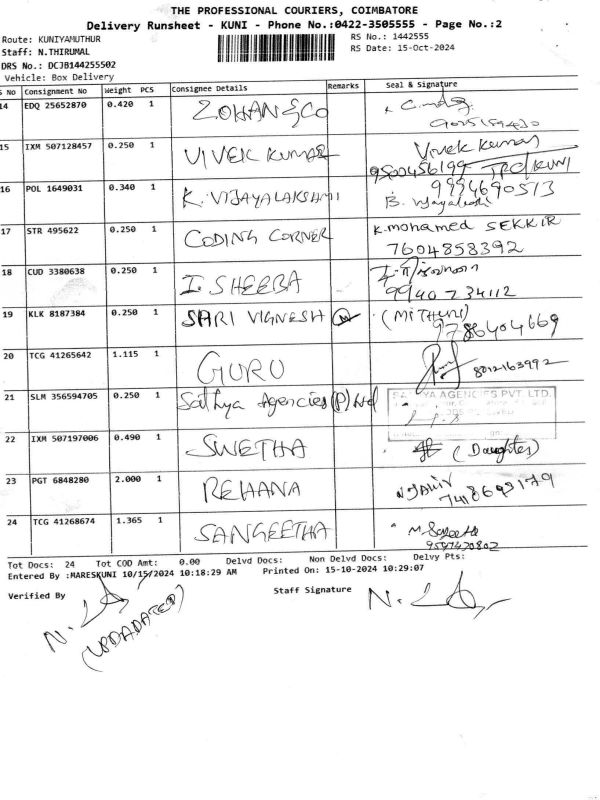 THE PROFESSIONAL COURIERS, COIMBATORE
Delivery Runsheet - KUNI - Phone No.:0422-3505555 - Page No.:2
Route: KUNIYAMUTHUR
RS No.: 1442555
Staff: N.THIRUMAL
RS Date: 15-Oct-2024
DRS No.: DCJB144255502
Vehicle: Box Delivery
S No Consignment No Weight PCS Consignee Details Remarks Seal & Signature
14 EDQ 25652870 0.420 1 ZOHAN & CO
15 IXM 507128457 0.250 1 VIVEK KUMAR Vivek Kumar
9500456199 TPC/KUNI
16 POL 1649031 0.340 1 K. VIJAYALAKSHMI 9994690513
B. Vijayalakshmi
17 STR 495622 0.250 1 CODING CORNER K. mohamed SEKKIR
7604858392
18 CUD 3380638 0.250 1 I. SHEEBA
9940734112
19 KLK 8187384 0.250 1 SHRI VIGNESH M (MITHUN)
9786404669
20 TCG 41265642 1.115 1 GURU 8012163992
21 SLM 356594705 0.250 1 Sathya Agencies (P) Ltd SATHYA AGENCIES PVT. LTD.
22 IXM 507197006 0.490 1 SWETHA (Daughter)
23 PGT 6848280 2.000 1 REHANA
7418693179
24 TCG 41268674 1.365 1 SANGEETHA
Tot Docs: 24 Tot COD Amt: 0.00 Delvd Docs: Non Delvd Docs: Delvy Pts:
Entered By :MARESKUNI 10/15/2024 10:18:29 AM Printed On: 15-10-2024 10:29:07
Verified By Staff Signature
(UPDADATED)